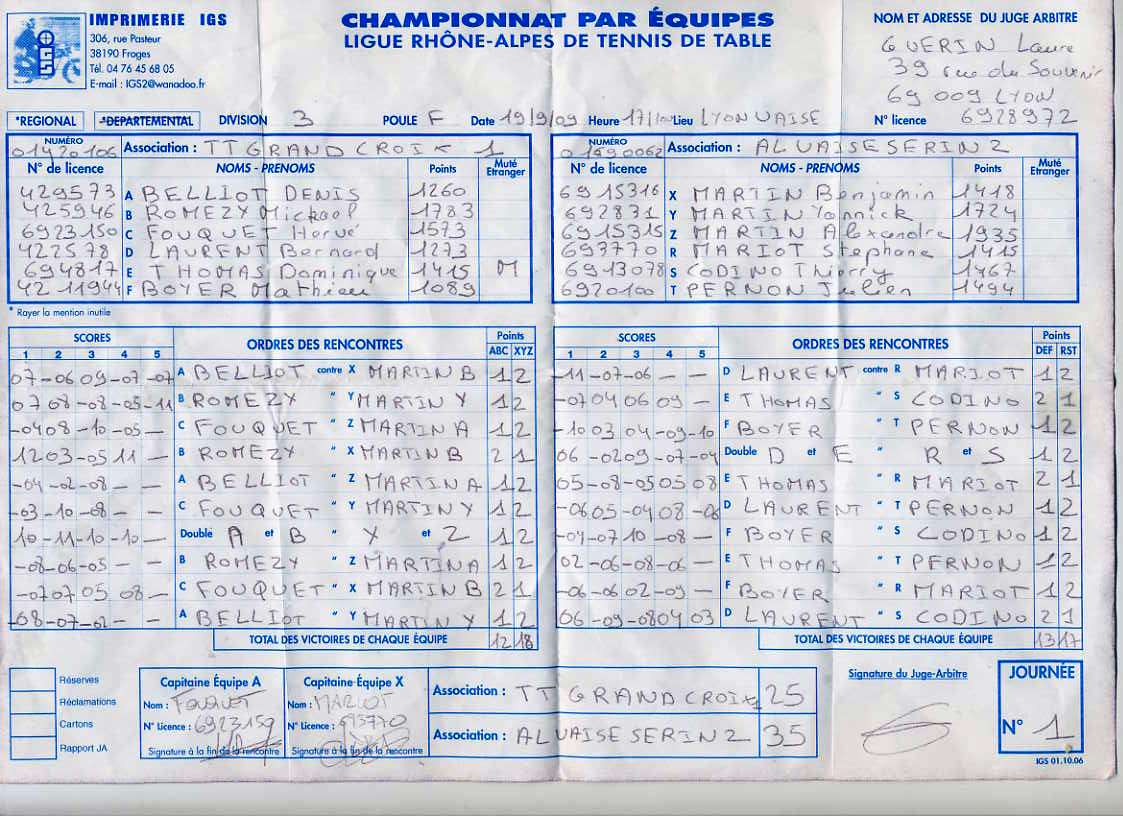 IMPRIMERIE IGS
306, rue Pasteur
38190 Froges
Tél. 04 76 45 68 05
E-mail : IGS2@wanadoo.fr
IGS
CHAMPIONNAT PAR ÉQUIPES
LIGUE RHÔNE-ALPES DE TENNIS DE TABLE
NOM ET ADRESSE DU JUGE ARBITRE
GUERIN Laure
39 rue du Souvenir
69 009 LYON
N° licence 6928972
*REGIONAL *DEPARTEMENTAL DIVISION 3 POULE F Date 19/9/09 Heure 17/00 Lieu LYON VAISE
NUMÉRO 01420106 Association : TT GRAND CROIX 1
N° de licence NOMS - PRENOMS Points Muté Etranger
429573 A BELLIOT DENIS 1260
425946 B ROMEZY Mickael 1783
6923150 C FOUQUET Hervé 1573
422578 D LAURENT Bernard 1273
694817 E THOMAS Dominique 1415 M
4211944 F BOYER Mathieu 1089
* Rayer la mention inutile
NUMÉRO 01690062 Association : AL VAISE SERIN 2
N° de licence NOMS - PRENOMS Points Muté Etranger
6915316 X MARTIN Benjamin 1418
692831 Y MARTIN Yannick 1724
6915315 Z MARTIN Alexandre 1935
693770 R MARIOT Stephane 1415
6913078 S CODINO Thierry 1467
6920100 T PERNON Julien 1494
SCORES ORDRES DES RENCONTRES Points
1 2 3 4 5 ABC XYZ
07 -06 09 -07 -07 A BELLIOT contre X MARTIN B 1 2
07 08 -08 -05 -11 B ROMEZY " Y MARTIN Y 1 2
-04 08 -10 -05 — C FOUQUET " Z MARTIN A 1 2
12 03 -05 11 — B ROMEZY " X MARTIN B 2 1
-04 -02 -08 — — A BELLIOT " Z MARTIN A 1 2
-03 -10 -08 — — C FOUQUET " Y MARTIN Y 1 2
10 -11 -10 -10 — Double A et B " X et Z 1 2
-08 -06 -05 — — B ROMEZY " Z MARTIN A 1 2
-07 07 05 08 — C FOUQUET " X MARTIN B 2 1
-08 -07 -02 — — A BELLIOT " Y MARTIN Y 1 2
TOTAL DES VICTOIRES DE CHAQUE ÉQUIPE 12 18
SCORES ORDRES DES RENCONTRES Points
1 2 3 4 5 DEF RST
-11 -07 -06 — — D LAURENT contre R MARIOT 1 2
-07 04 06 09 — E THOMAS " S CODINO 2 1
-10 03 04 -09 -10 F BOYER " T PERNON 1 2
06 -02 09 -07 -04 Double D et E " R et S 1 2
05 -08 -05 05 08 E THOMAS " R MARIOT 2 1
-06 05 -04 08 -06 D LAURENT " T PERNON 1 2
-04 -07 10 -08 — F BOYER " S CODINO 1 2
02 -06 -08 -08 — E THOMAS " T PERNON 1 2
-06 -06 02 -09 — F BOYER " R MARIOT 1 2
06 -09 -08 04 03 D LAURENT " S CODINO 2 1
TOTAL DES VICTOIRES DE CHAQUE ÉQUIPE 13 17
Réserves
Réclamations
Cartons
Rapport JA
Capitaine Équipe A
Nom : FOUQUET
N° Licence : 6923150
Signature à la fin de la rencontre
Capitaine Équipe X
Nom : MARIOT
N° Licence : 693770
Signature à la fin de la rencontre
Association : TT GRAND CROIX 1 25
Association : AL VAISE SERIN 2 35
Signature du Juge-Arbitre
JOURNÉE
N° 1
IGS 01.10.06